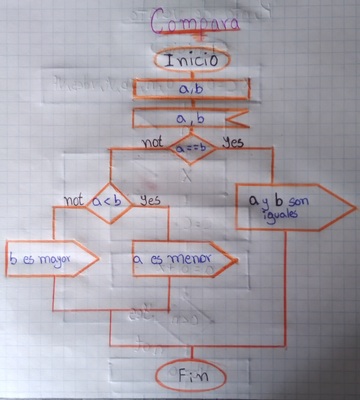 Compara
Inicio
a,b
a,b
not a==b yes
not a<b yes
a y b son
iguales
b es mayor
a es menor
Fin